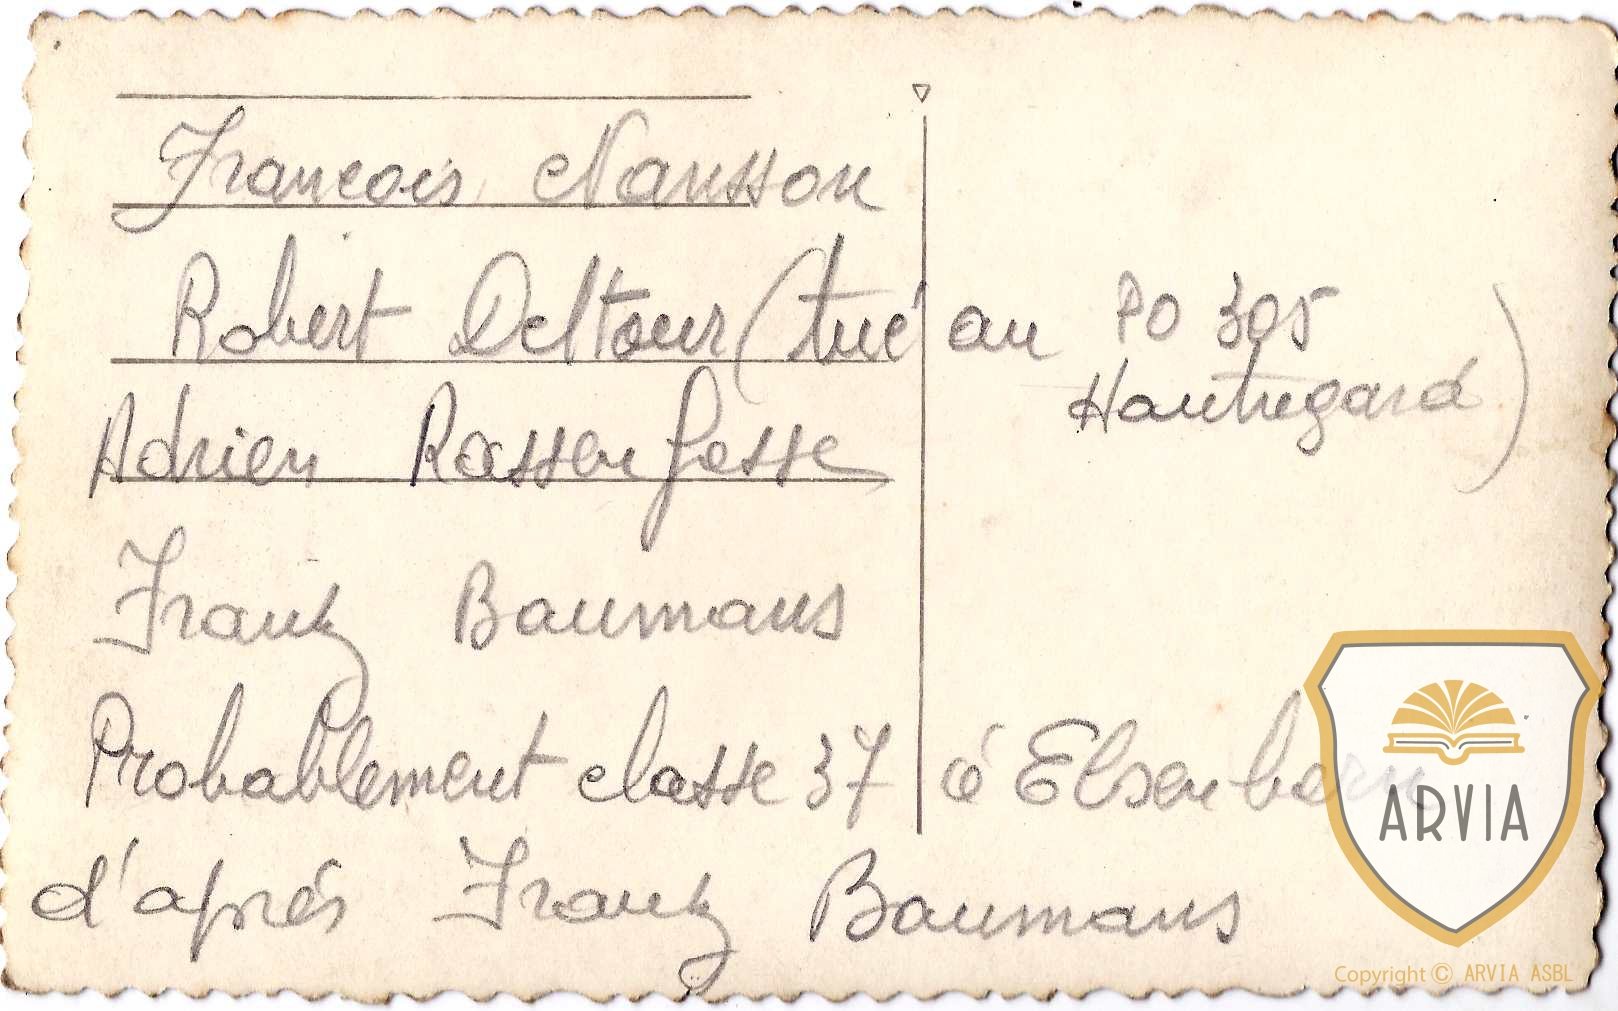 Francois Nansson
Robert Deltour (tué au PO 305
Hautregard)
Adrien Rassenfosse
Frantz Baumans
Probablement classe 37 à Elsenborn
d'après Frantz Baumans
ARVIA
Copyright © ARVIA ASBL